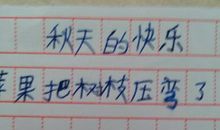 秋天的快乐
苹果把树枝压弯了